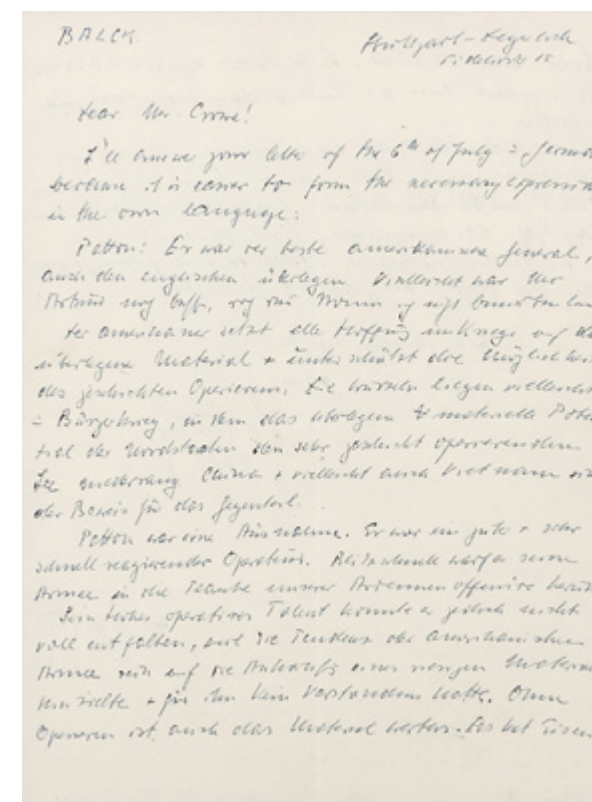 BALCK
Stuttgart-
Dear Mr Crowe!
I'll answer your letter of the 6th of July
because it is easier to form the necessary expression
in the own language:
Patton: Er war der beste amerikanische General,
auch den englischen überlegen. Vielleicht war
noch
der Amerikaner setzt alle Hoffnung im Kriege auf
überlegene Material + unterschätzt die Möglichkei
des geschickten Operierens. Die Wurzeln liegen vielleicht
= Bürgerkrieg, in dem das überlegene materielle Poten
tial der Nordstaaten den sehr geschickt operierenden
Lee niederrang China + vielleicht auch Vietnam sin
der Beweis für das Gegenteil.
Patton war eine Ausnahme. Er war ein guter + sehr
schnell reagierender Operateur. Blitzschnell warf er seine
Armee in die Flanke unserer Ardennenoffensive
Sein hohes operatives Talent konnte er jedoch nicht
voll entfalten, weil die Tendenz der amerikanischen
Armee sich auf die Anhäufung eines riesigen
hinzielte + für ihn kein Verständnis hatte. Ohne
Operieren ist auch das Material wertlos. Das hat Eisen